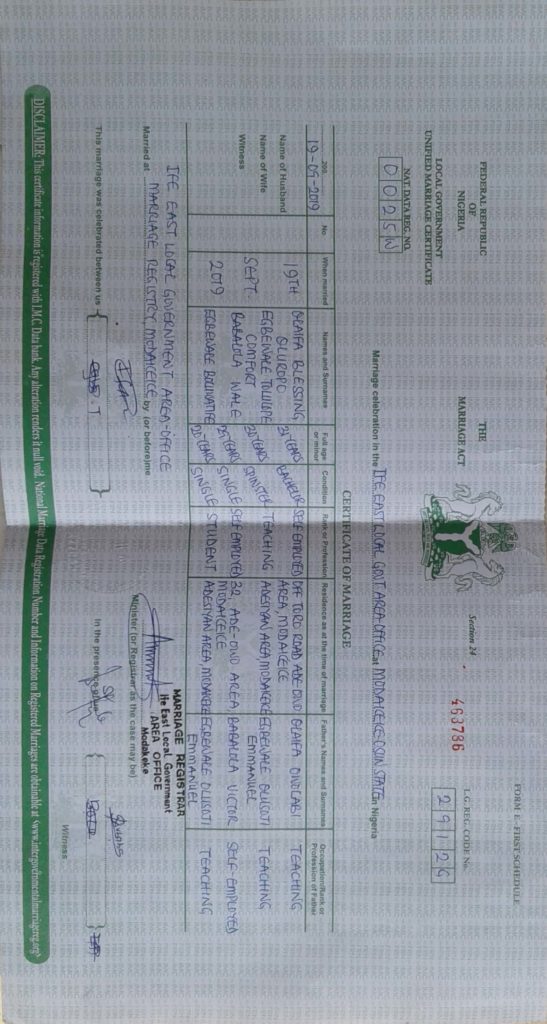 FORM E - FIRST SCHEDULE
FEDERAL REPUBLIC
OF
NIGERIA
LOCAL GOVERNMENT
UNIFIED MARRIAGE CERTIFICATE
NAT. DATA REG. NO.
0025N
THE
MARRIAGE ACT
Section 24
463786
L.G. REG. CODE No.
Marriage celebration in the IFE EAST LOCAL GOVT AREA OFFICE at MODAKEKE OSUN STATE in Nigeria
CERTIFICATE OF MARRIAGE
No. When married Names and Surnames Full age or minor Condition Rank or Profession Residence as at the time of marriage Father's Names and Surnames Occupation/Rank or Profession of Father
19-09-2019
Name of Husband 19TH OLAIFA BLESSING OLUROPO BACHELOR SELF EMPLOYED OFF TORO ROAD, ADE OWO AREA, MODAKEKE OLAIFA TEACHING
Name of Wife SEPT. EGBEWALE TOLULOPE COMFORT 30 YEARS SPINSTER TEACHING ADESIYAN AREA, MODAKEKE EGBEWALE EMMANUEL TEACHING
Witness 2019 BABALOLA WALE SINGLE SELF EMPLOYED 32, ADE-OWO AREA, MODAKEKE BABALOLA VICTOR SELF-EMPLOYED
EGBEWALE 20 YEARS SINGLE STUDENT ADESIYAN AREA, MODAKEKE EGBEWALE EMMANUEL TEACHING
IFE EAST LOCAL GOVERNMENT AREA-OFFICE
Married at MARRIAGE REGISTRY, MODAKEKE by (or before) me
MARRIAGE REGISTRAR
Ife East Local Government
AREA OFFICE
Modakeke
Minister (or Registrar as the case may be)
This marriage was celebrated between us
In the presence of us
Witness
DISCLAIMER: This certificate information is registered with I.M.C. Data bank. Any alteration renders it null void. National Marriage Data Registration Number and Information on Registered Marriages are obtainable at <www.intergovernmentalmarriagereg.org>